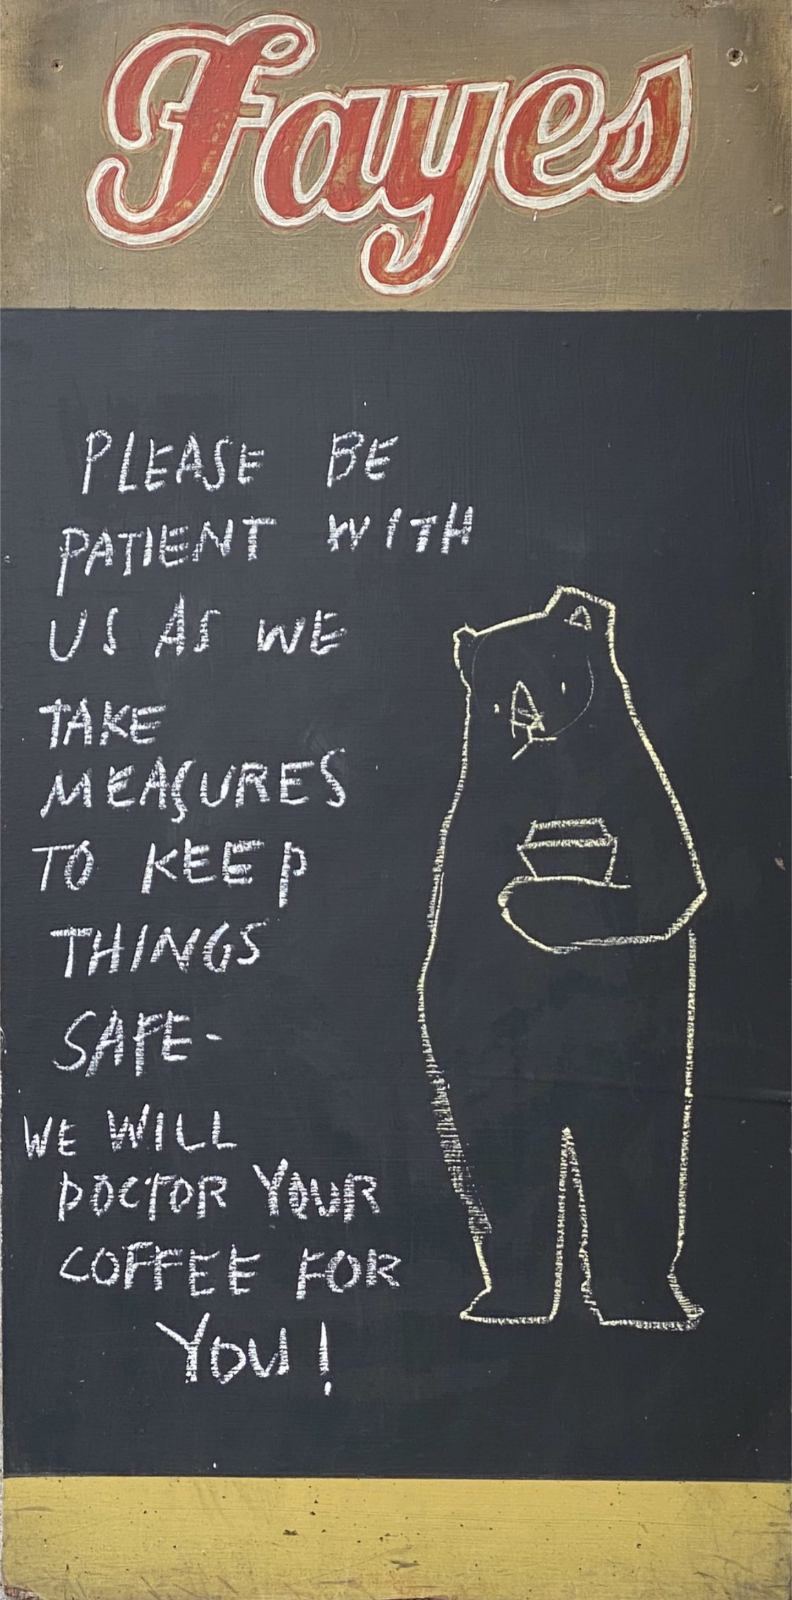 Fayes
PLEASE BE
PATIENT WITH
US AS WE
TAKE
MEASURES
TO KEEP
THINGS
SAFE-
WE WILL
DOCTOR YOUR
COFFEE FOR
YOU!